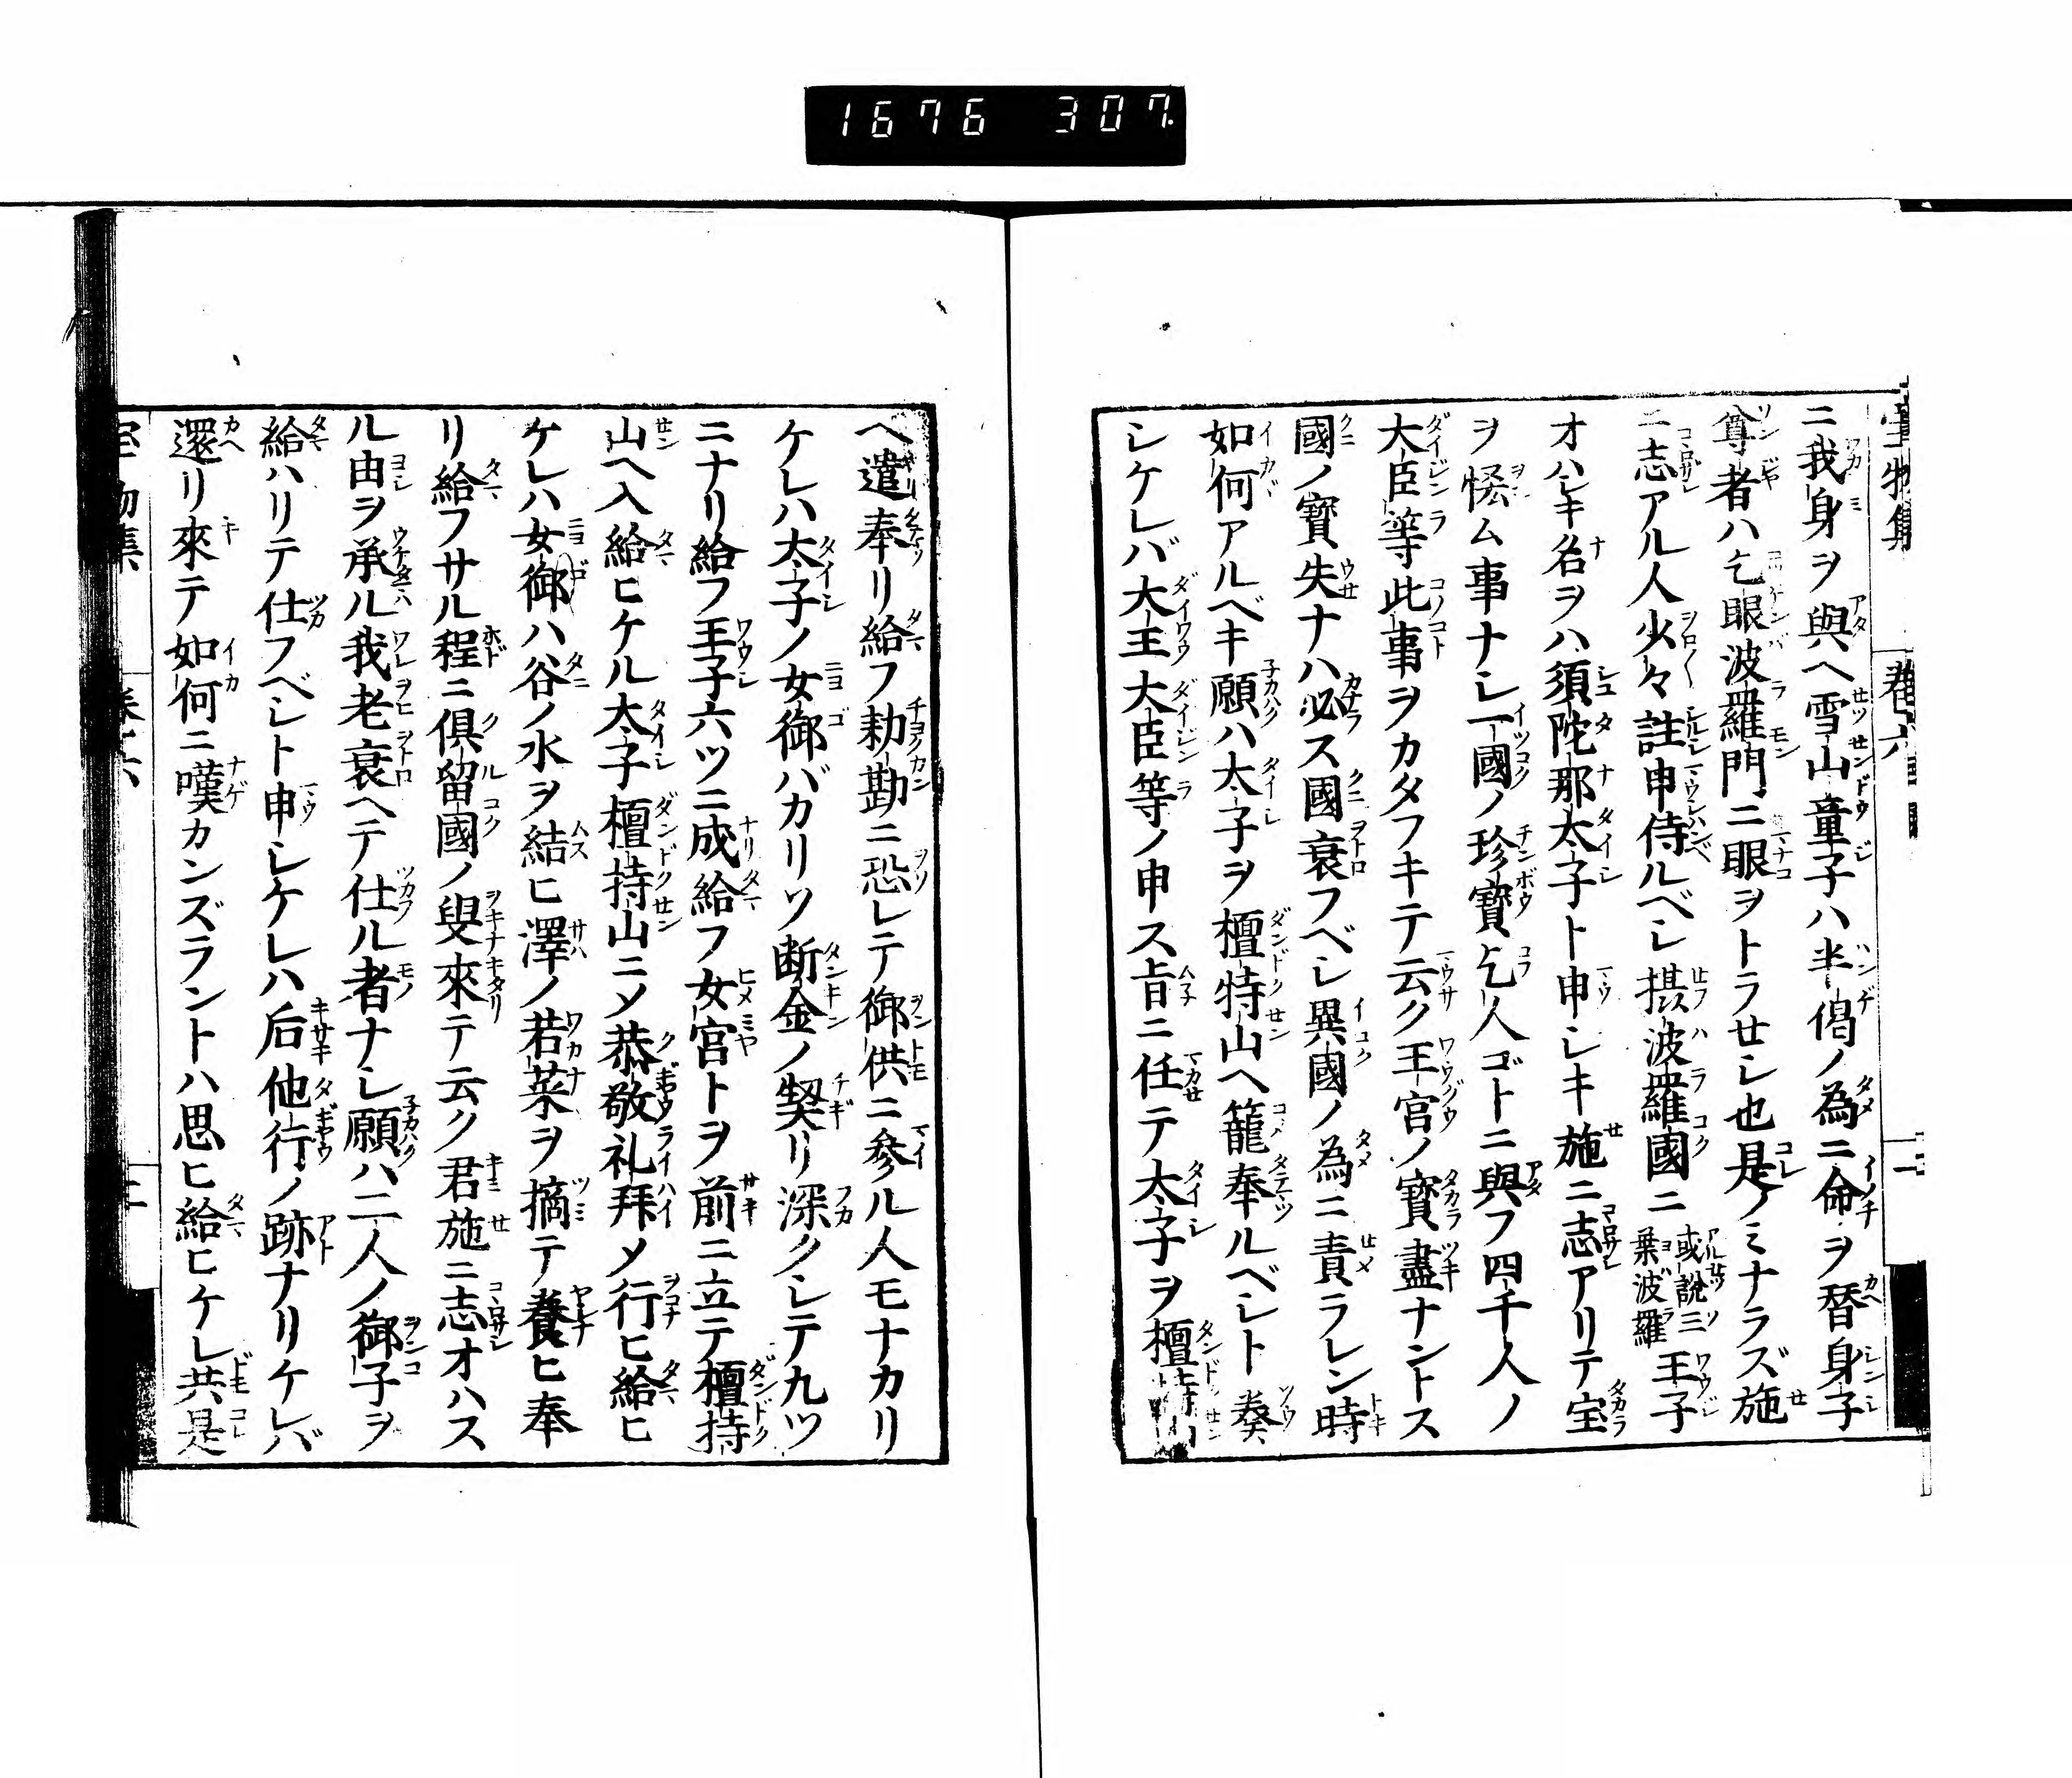 1676 307
宝物集 巻六 二
ニ我身ヲ與ヘ雪山童子ハ半偈ノ為ニ命ヲ替身子
尊者ハ乞眼波羅門ニ眼ヲトラセシ也是ノミナラズ施
ニ志アル人少々註申侍ルベシ摂波羅國ニ或説ニ葉波羅王子
オハシキ名ヲハ須陀那太子ト申シキ施ニ志アリテ宝
ヲ悋ム事ナシ一國ノ珍寶乞人ゴトニ與フ四千人ノ
大臣等此事ヲカタフキテ云ク王宮ノ寳盡ナントス
國ノ寳失ナハ必ス國衰フベシ異國ノ為ニ責ラレン時
如何アルベキ願ハ太子ヲ檀特山ヘ籠奉ルベシト奏
シケレバ大王大臣等ノ申ス旨ニ任テ太子ヲ檀特山
ヘ遣奉リ給フ勅勘ニ恐レテ御供ニ参ル人モナカリ
ケレハ太子ノ女御バカリソ断金ノ契リ深クシテ九ツ
ニナリ給フ王子六ツニ成給フ女宮トヲ前ニ立テ檀持
山ヘ入給ヒケル太子檀持山ニメ恭敬礼拜メ行ヒ給ヒ
ケレハ女御ハ谷ノ水ヲ結ヒ澤ノ若菜ヲ摘テ養ヒ奉
リ給フサル程ニ倶留國ノ叟來テ云ク君施ニ志オハス
ル由ヲ承ル我老衰ヘテ仕ル者ナシ願ハ二人ノ御子ヲ
給ハリテ仕フベシト申シケレハ后他行ノ跡ナリケレバ
還リ來テ如何ニ嘆カンズラントハ思ヒ給ヒケレ共是